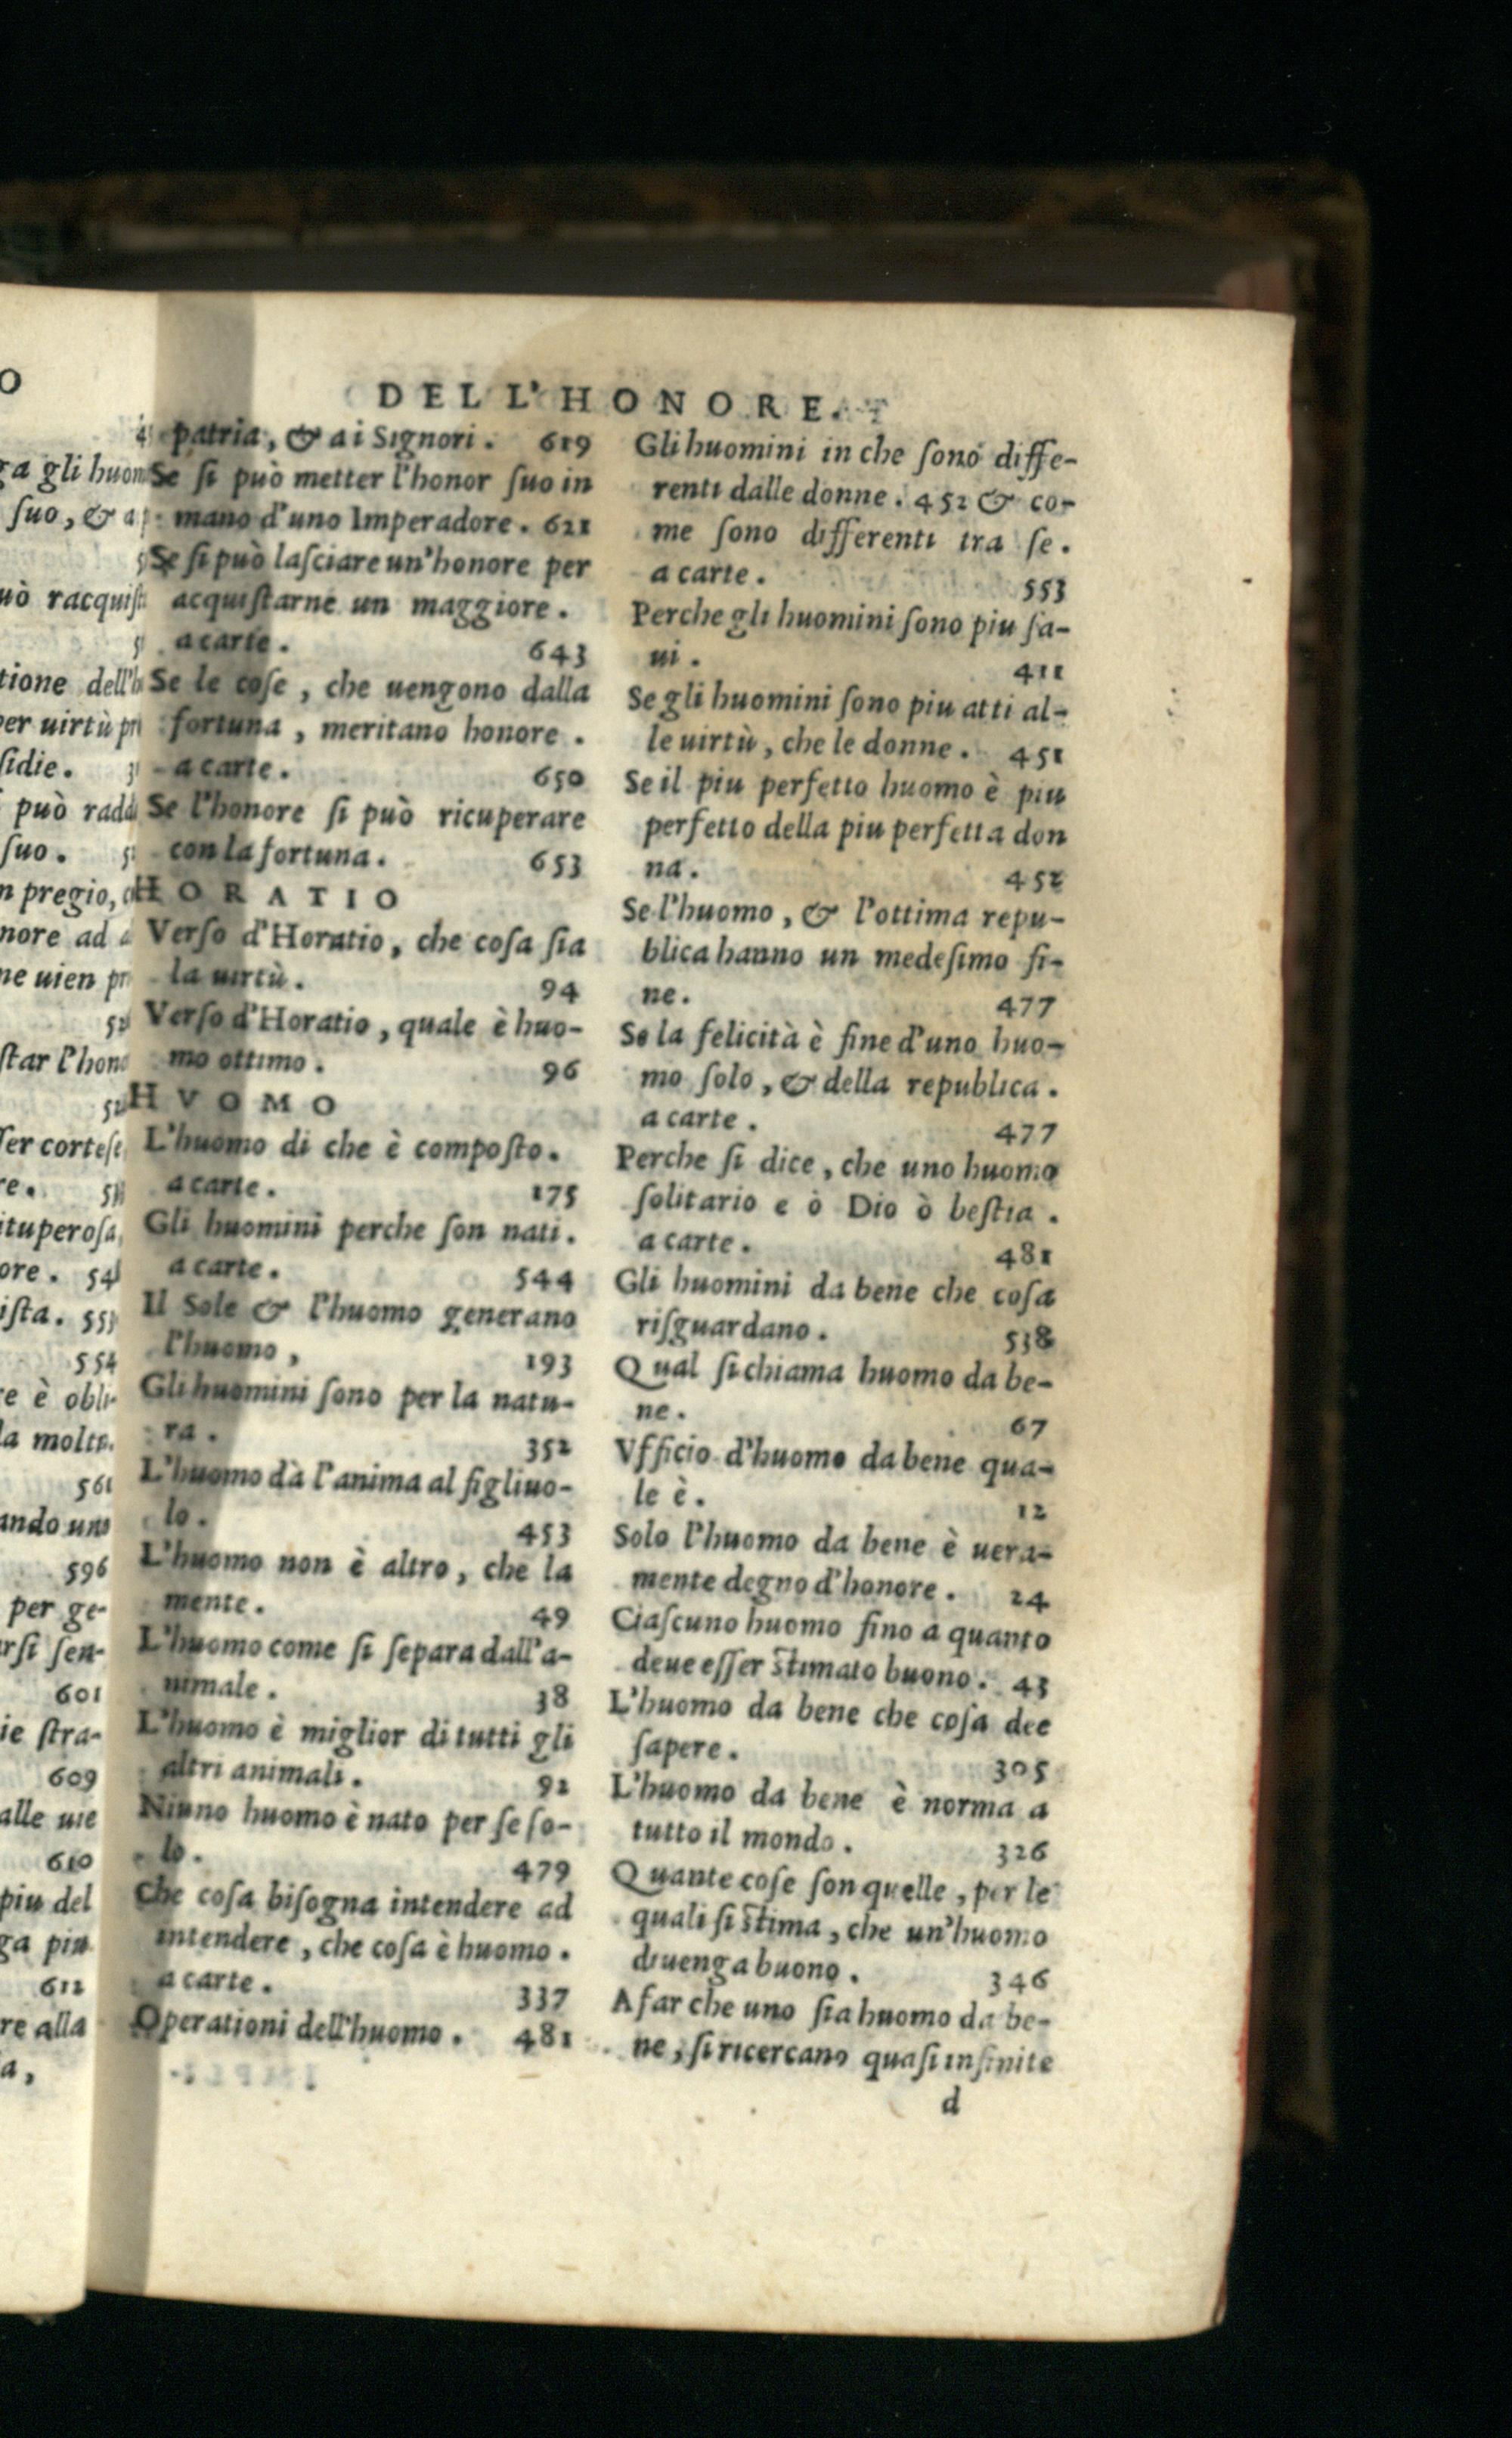 DELL'HONORE.
patria, & ai Signori. 619
Se ſi può metter l'honor ſuo in
mano d'uno Imperadore. 621
Se ſi può laſciare un'honore per
acquiſtarne un maggiore.
a carte. 643
Se le coſe, che uengono dalla
fortuna, meritano honore.
a carte. 650
Se l'honore ſi può ricuperare
con la fortuna. 653
HORATIO
Verſo d'Horatio, che coſa ſia
la uirtù. 94
Verſo d'Horatio, quale è huo-
mo ottimo. 96
HVOMO
L'huomo di che è compoſto.
a carte. 175
Gli huomini perche ſon nati.
a carte. 544
Il Sole & l'huomo generano
l'huomo, 193
Gli huomini ſono per la natu-
ra. 352
L'huomo dà l'anima al figliuo-
lo. 453
L'huomo non è altro, che la
mente. 49
L'huomo come ſi ſepara dall'a-
nimale. 38
L'huomo è miglior di tutti gli
altri animali. 92
Niuno huomo è nato per ſe ſo-
lo. 479
Che coſa biſogna intendere ad
intendere, che coſa è huomo.
a carte. 337
Operationi dell'huomo. 481
Gli huomini in che ſono diffe-
renti dalle donne. 452 & co-
me ſono differenti tra ſe.
a carte. 553
Perche gli huomini ſono piu ſa-
ui. 411
Se gli huomini ſono piu atti al-
le uirtù, che le donne. 451
Se il piu perfetto huomo è piu
perfetto della piu perfetta don
na. 452
Se l'huomo, & l'ottima repu-
blica hanno un medeſimo fi-
ne. 477
Se la felicità è fine d'uno huo-
mo ſolo, & della republica.
a carte. 477
Perche ſi dice, che uno huomo
ſolitario e ò Dio ò beſtia.
a carte. 481
Gli huomini da bene che coſa
riſguardano. 538
Qual ſi chiama huomo da be-
ne. 67
Vfficio d'huomo da bene qua-
le è. 12
Solo l'huomo da bene è uera-
mente degno d'honore. 24
Ciaſcuno huomo fino a quanto
deue eſſer ſtimato buono. 43
L'huomo da bene che coſa dee
ſapere. 305
L'huomo da bene è norma a
tutto il mondo. 326
Quante coſe ſon quelle, per le
quali ſi ſtima, che un'huomo
diuenga buono. 346
A far che uno ſia huomo da be-
ne, ſi ricercano quaſi infinite
d